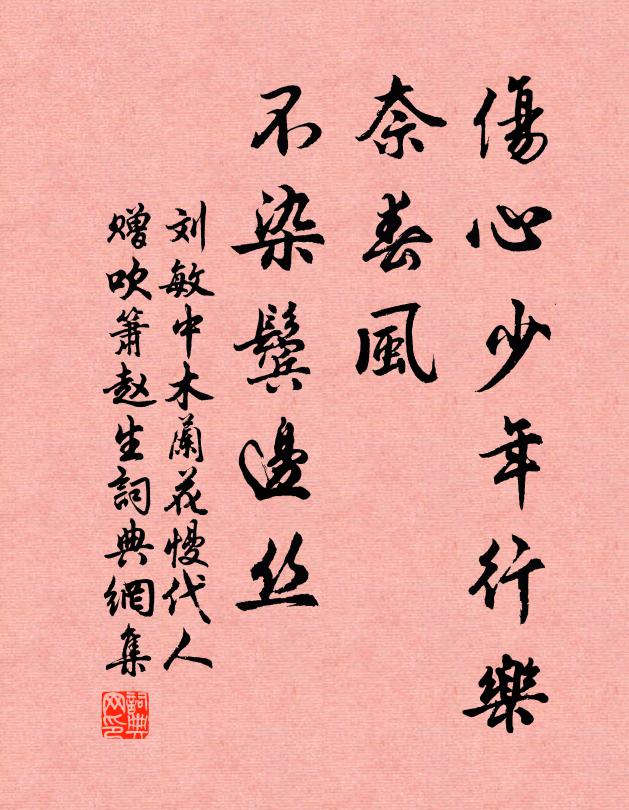 傷心少年行樂
奈春風
不染鬢邊丝
刘敏中木蘭花慢代人
赠吹簫赵生詞典網集
詞典
网印